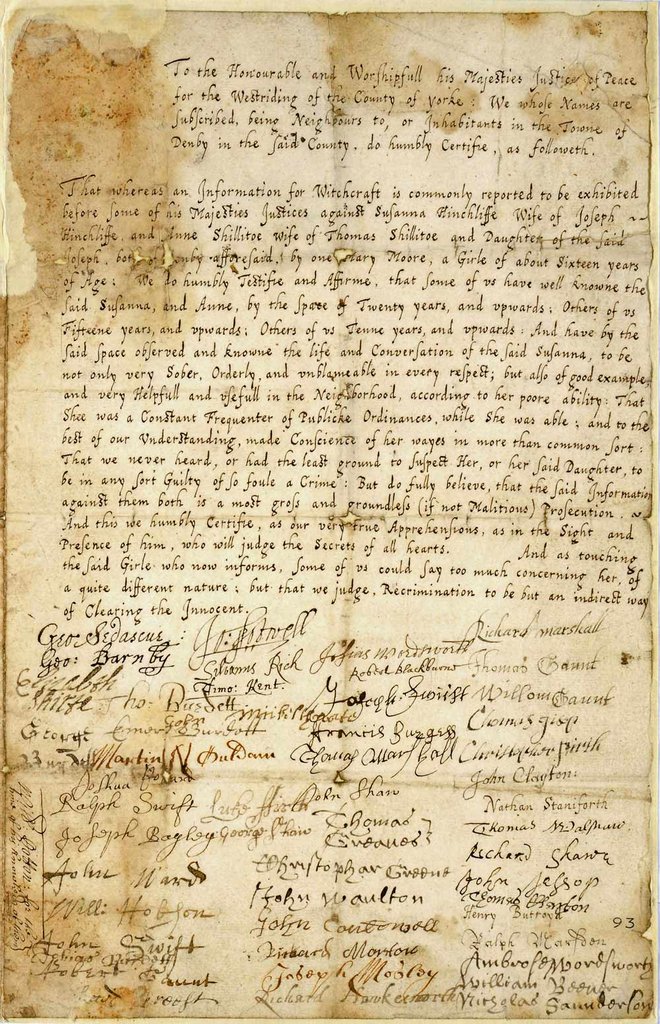 To the Honourable and Worshipfull his Majesties Justices of Peace
for the Westriding of the County of Yorke: We whose Names are
Subscribed, being Neighbours to, or Inhabitants in the Towne of
Denby in the said County, do humbly Certifie, as followeth.
That whereas an Information for Witchcraft is commonly reported to be exhibited
before some of his Majesties Justices against Susanna Hinchliffe Wife of Joseph
Hinchliffe, and Anne Shillitoe Wife of Thomas Shillitoe and Daughter of the said
Joseph, both of Denby afforesaid, by one Mary Moore, a Girle of about Sixteen years
of Age: We do humbly Testifie and Affirme, that some of us have well knowne the
said Susanna, and Anne, by the space of Twenty years, and vpwards; Others of vs
Fifteene years, and vpwards; Others of vs Tenne years, and vpwards: And have by the
said space observed and knowne the life and Conversation of the said Susanna, to be
not only very Sober, Orderly, and vnblameable in every respect; but also of good example,
and very Helpfull and vsefull in the Neighborhood, according to her poore ability: That
Shee was a Constant Frequenter of Publicke Ordinances, while She was able; and to the
best of our Understanding, made Conscience of her wayes in more than common sort:
That we never heard, or had the least ground to suspect Her, or her said Daughter, to
be in any sort Guilty of so foule a Crime: But do fully believe, that the said Information
against them both is a most gross and groundless (if not Malitious) Prosecution.
And this we humbly Certifie, as our very true Apprehensions, as in the Sight and
Presence of him, who will judge the Secrets of all hearts. And as touching
the said Girle who now informs, some of us could say too much concerning her, of
a quite different nature; but that we judge, Recrimination to be but an indirect way
of Clearing the Innocent.
Richard Marshall
Geo: Sedascue
Geo: Barnby
Silvanus Rich
Josias Wordsworth
Robert Blackburne
Thomas Gaunt
Timo: Kent.
Tho: Burdett
Joseph Swift
William Gaunt
George
John Burdett
Francis Burgess
Martin
Thomas Marshall
Christopher Firth
Joshua
John Clayton
Ralph Swift
Luke Firth
John Shaw
Nathan Staniforth
Joseph Bagley
George Shaw
Thomas Greaves
Thomas
Richard Shaw
John Ward
Christophar Greene
John Jessop
John Waulton
Thomas
Henry
Will: Hobson
John
93
John Swift
Richard Morton
Ralph Marsden
Robert Gaunt
Joseph Mosley
Ambrose Wordsworth
William
Richard Hawkesworth
Nicholas Saunderson